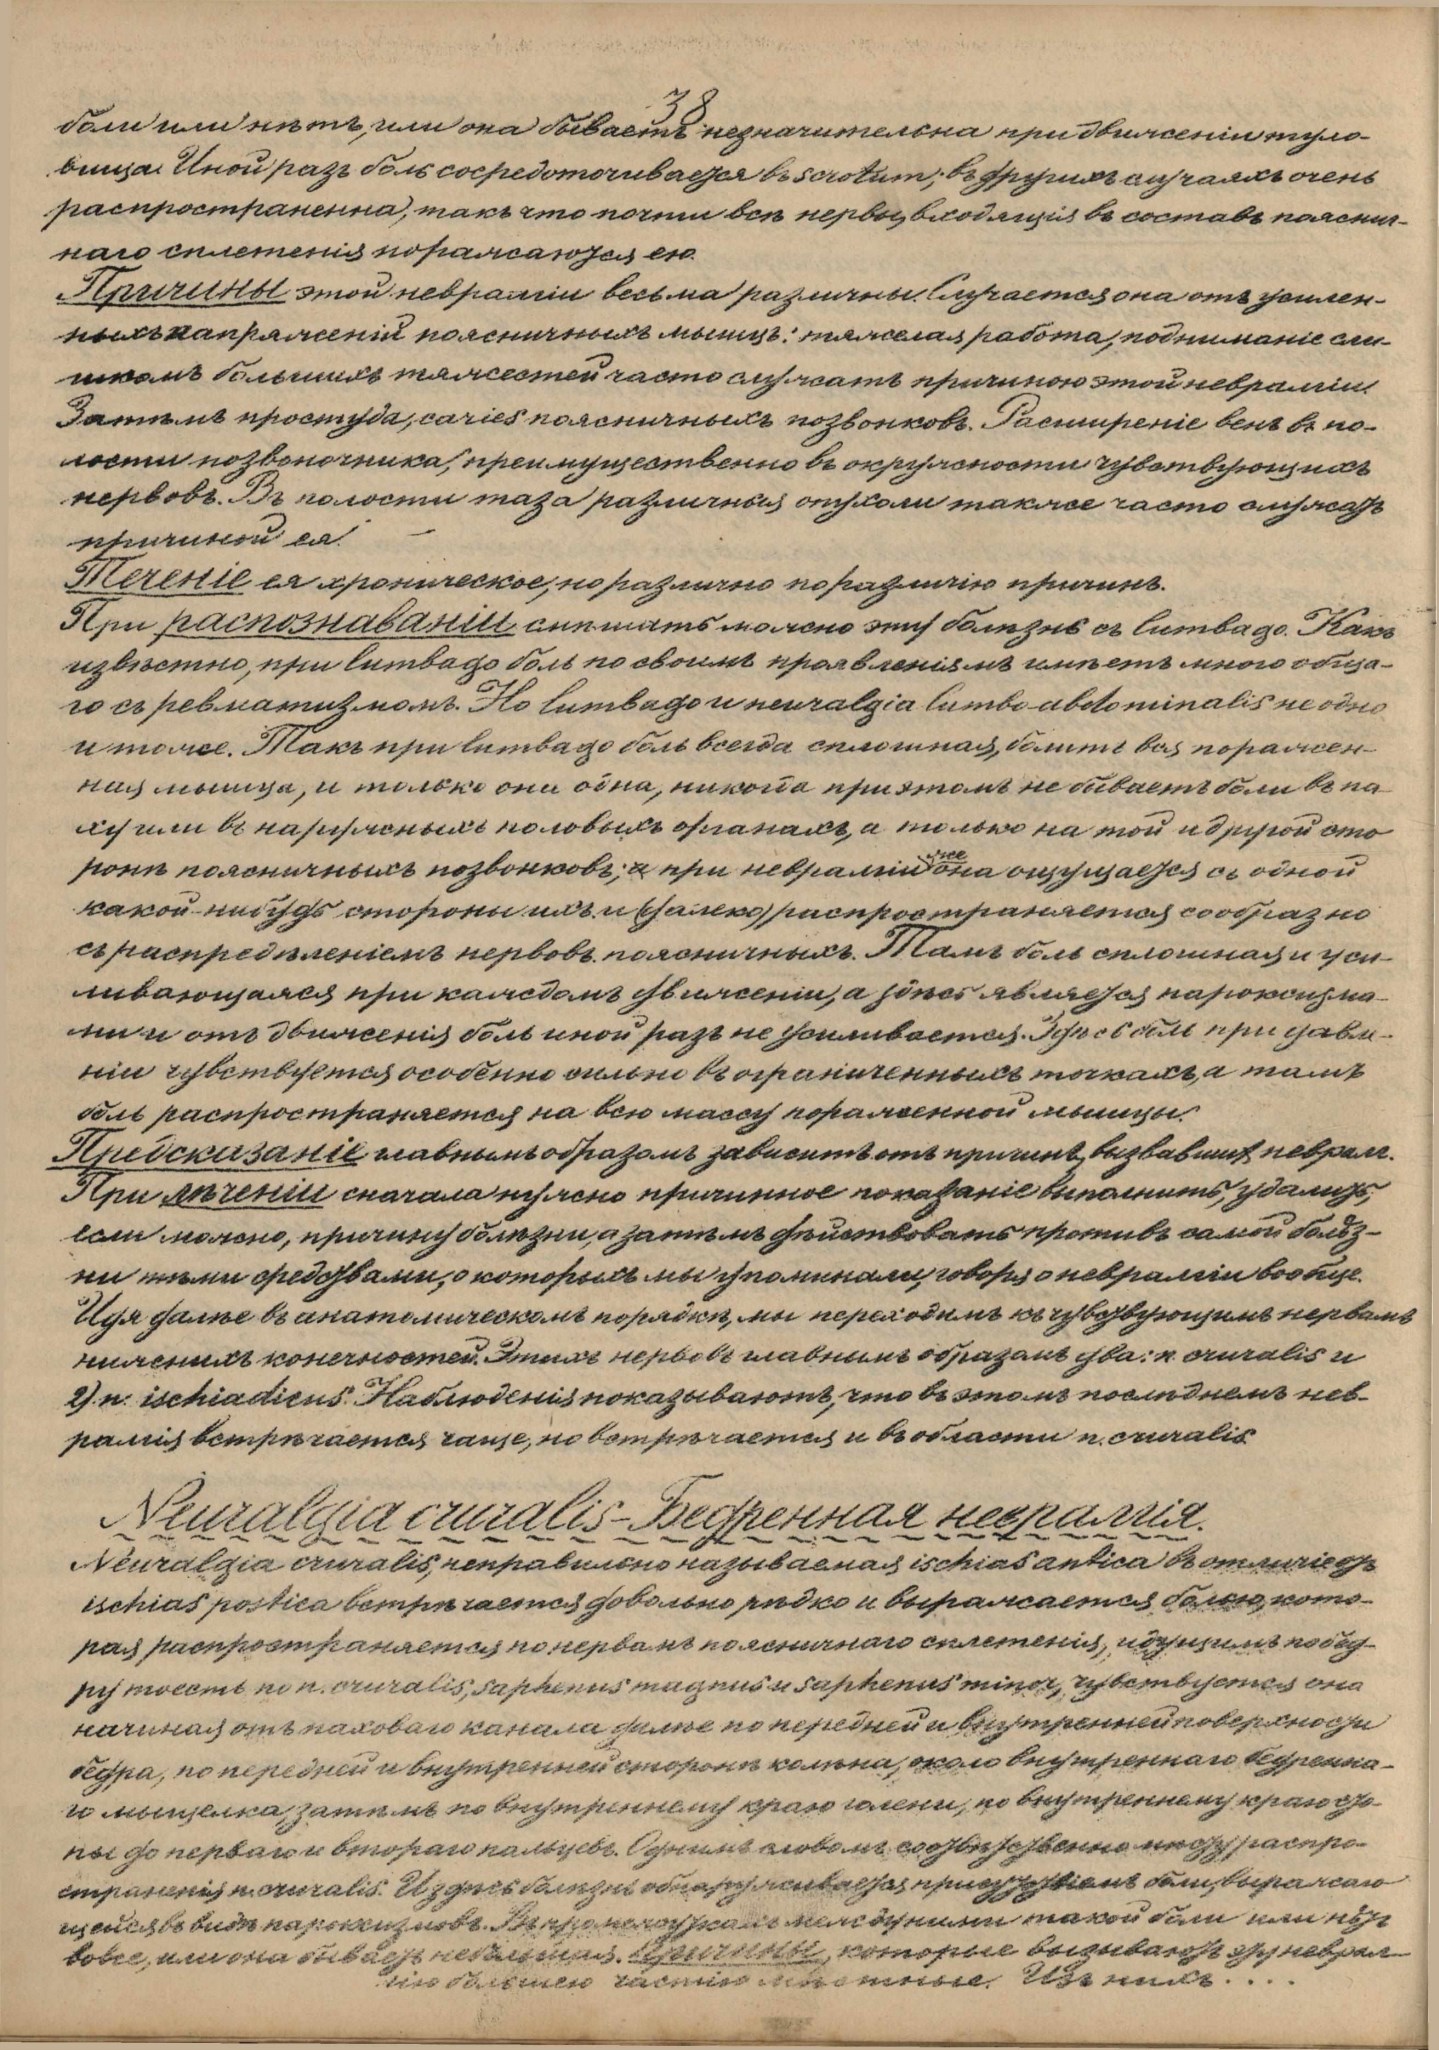 38
боли или нѣтъ, или она бываетъ незначительна при движеніи туло-
вища. Иной разъ боль сосредоточивается въ scrotum; въ другихъ случаяхъ очень
распространенна, такъ что почти всѣ нервы, входящія въ составъ пояснич-
наго сплетенія поражаются ею.
Причины этой невралгіи весьма различны. Случается она отъ усилен-
ныхъ напряженій поясничныхъ мышцъ: тяжелая работа, подниманіе сли-
шкомъ большихъ тяжестей часто служатъ причиною этой невралгіи.
Затѣмъ простуда, caries поясничныхъ позвонковъ. Расширеніе венъ въ по-
лости позвоночника, преимущественно въ окружности чувствующихъ
нервовъ. Въ полости таза различныя опухоли также часто служатъ
причиной ея.
Теченіе ея хроническое, но различно по различію причинъ.
При распознаваніи смѣшать можно эту болѣзнь съ lumbago. Какъ
извѣстно, при lumbago боль по своимъ проявленіямъ имѣетъ много обща-
го съ ревматизмомъ. Но lumbago и neuralgia lumbo-abdominalis не одно
и тоже. Такъ при lumbago боль всегда сплошная, болитъ вся поражен-
ная мышца, и только она одна, никогда при этомъ не бываетъ боли въ па-
ху или въ наружныхъ половыхъ органахъ, а только на той и другой сто
ронѣ поясничныхъ позвонковъ; а при невралгіи же она ощущается съ одной
какой-нибудь стороны ихъ и (далеко) распространяется сообразно
съ распредѣленіемъ нервовъ поясничныхъ. Тамъ боль сплошная и уси-
ливающаяся при каждомъ движеніи, а здѣсь является пароксизма-
ми и отъ движенія боль иной разъ не усиливается. Здѣсь боль при давле-
ніи чувствуется особенно сильно въ ограниченныхъ точкахъ, а тамъ
боль распространяется на всю массу пораженной мышцы.
Предсказаніе главнымъ образомъ зависитъ отъ причинъ, вызвавшихъ невралг.
При лѣченіи сначала нужно причинное показаніе выполнить, удалить,
если можно, причину болѣзни, а затѣмъ дѣйствовать противъ самой болѣз-
ни тѣми средствами, о которыхъ мы упоминали, говоря о невралгіи вообще.
Идя далѣе въ анатомическомъ порядкѣ, мы переходимъ къ чувствующимъ нервамъ
нижнихъ конечностей. Этихъ нервовъ главнымъ образомъ два: n. cruralis и
2) n. ischiadicus. Наблюденія показываютъ, что въ этомъ послѣднемъ нев-
ралгія встрѣчается чаще, но встрѣчается и въ области n. cruralis.
Neuralgia cruralis - Бедренная невралгія.
Neuralgia cruralis, неправильно называемая ischias antica въ отличіе отъ
ischias postica встрѣчается довольно рѣдко и выражается болью, кото-
рая распространяется по нервамъ поясничнаго сплетенія, идущимъ по бед-
ру тоесть по n. cruralis, saphenus magnus и saphenus minor, чувствуется она
начиная отъ пахового канала далѣе по передней и внутренней поверхности
бедра, по передней и внутренней сторонѣ колѣна, около внутренняго бедренна-
го мыщелка, затѣмъ по внутреннему краю голени, по внутреннему краю сто-
пы до перваго и второго пальцевъ. Однимъ словомъ соотвѣтственно распро-
страненія n. cruralis. И здѣсь болѣзнь обнаруживается присутствіемъ боли, выражаю
щейся въ видѣ пароксизмовъ. Въ промежуткахъ между ними такой боли или нѣтъ
вовсе, или она бываетъ небольшая. Причины, которые вызываютъ эту неврал-
гію большею частію мѣстные. Изъ нихъ....